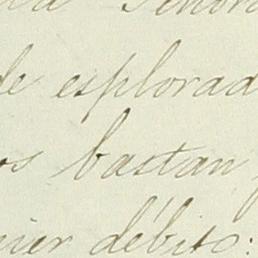 Señor
de esplorad
os bastan
uier débito: